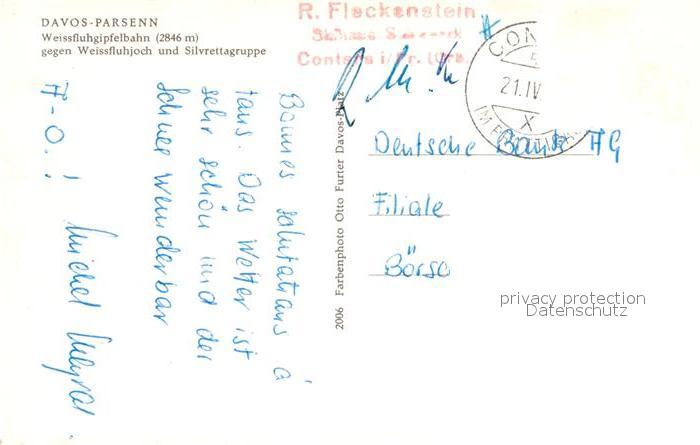 DAVOS-PARSENN
Weissfluhgipfelbahn (2846 m)
gegen Weissfluhjoch und Silvrettagruppe
R. Fleckenstein
Conters i/Pr. (Grb.
21. IV
X
2006 Farbenphoto Otto Furter Davos-Platz
Bonnes salutations à
tous. Das Wetter ist
sehr schön und der
Schnee wunderbar
A-O.!
Michel
Deutsche Bank AG
Filiale
Börse
privacy protection
Datenschutz